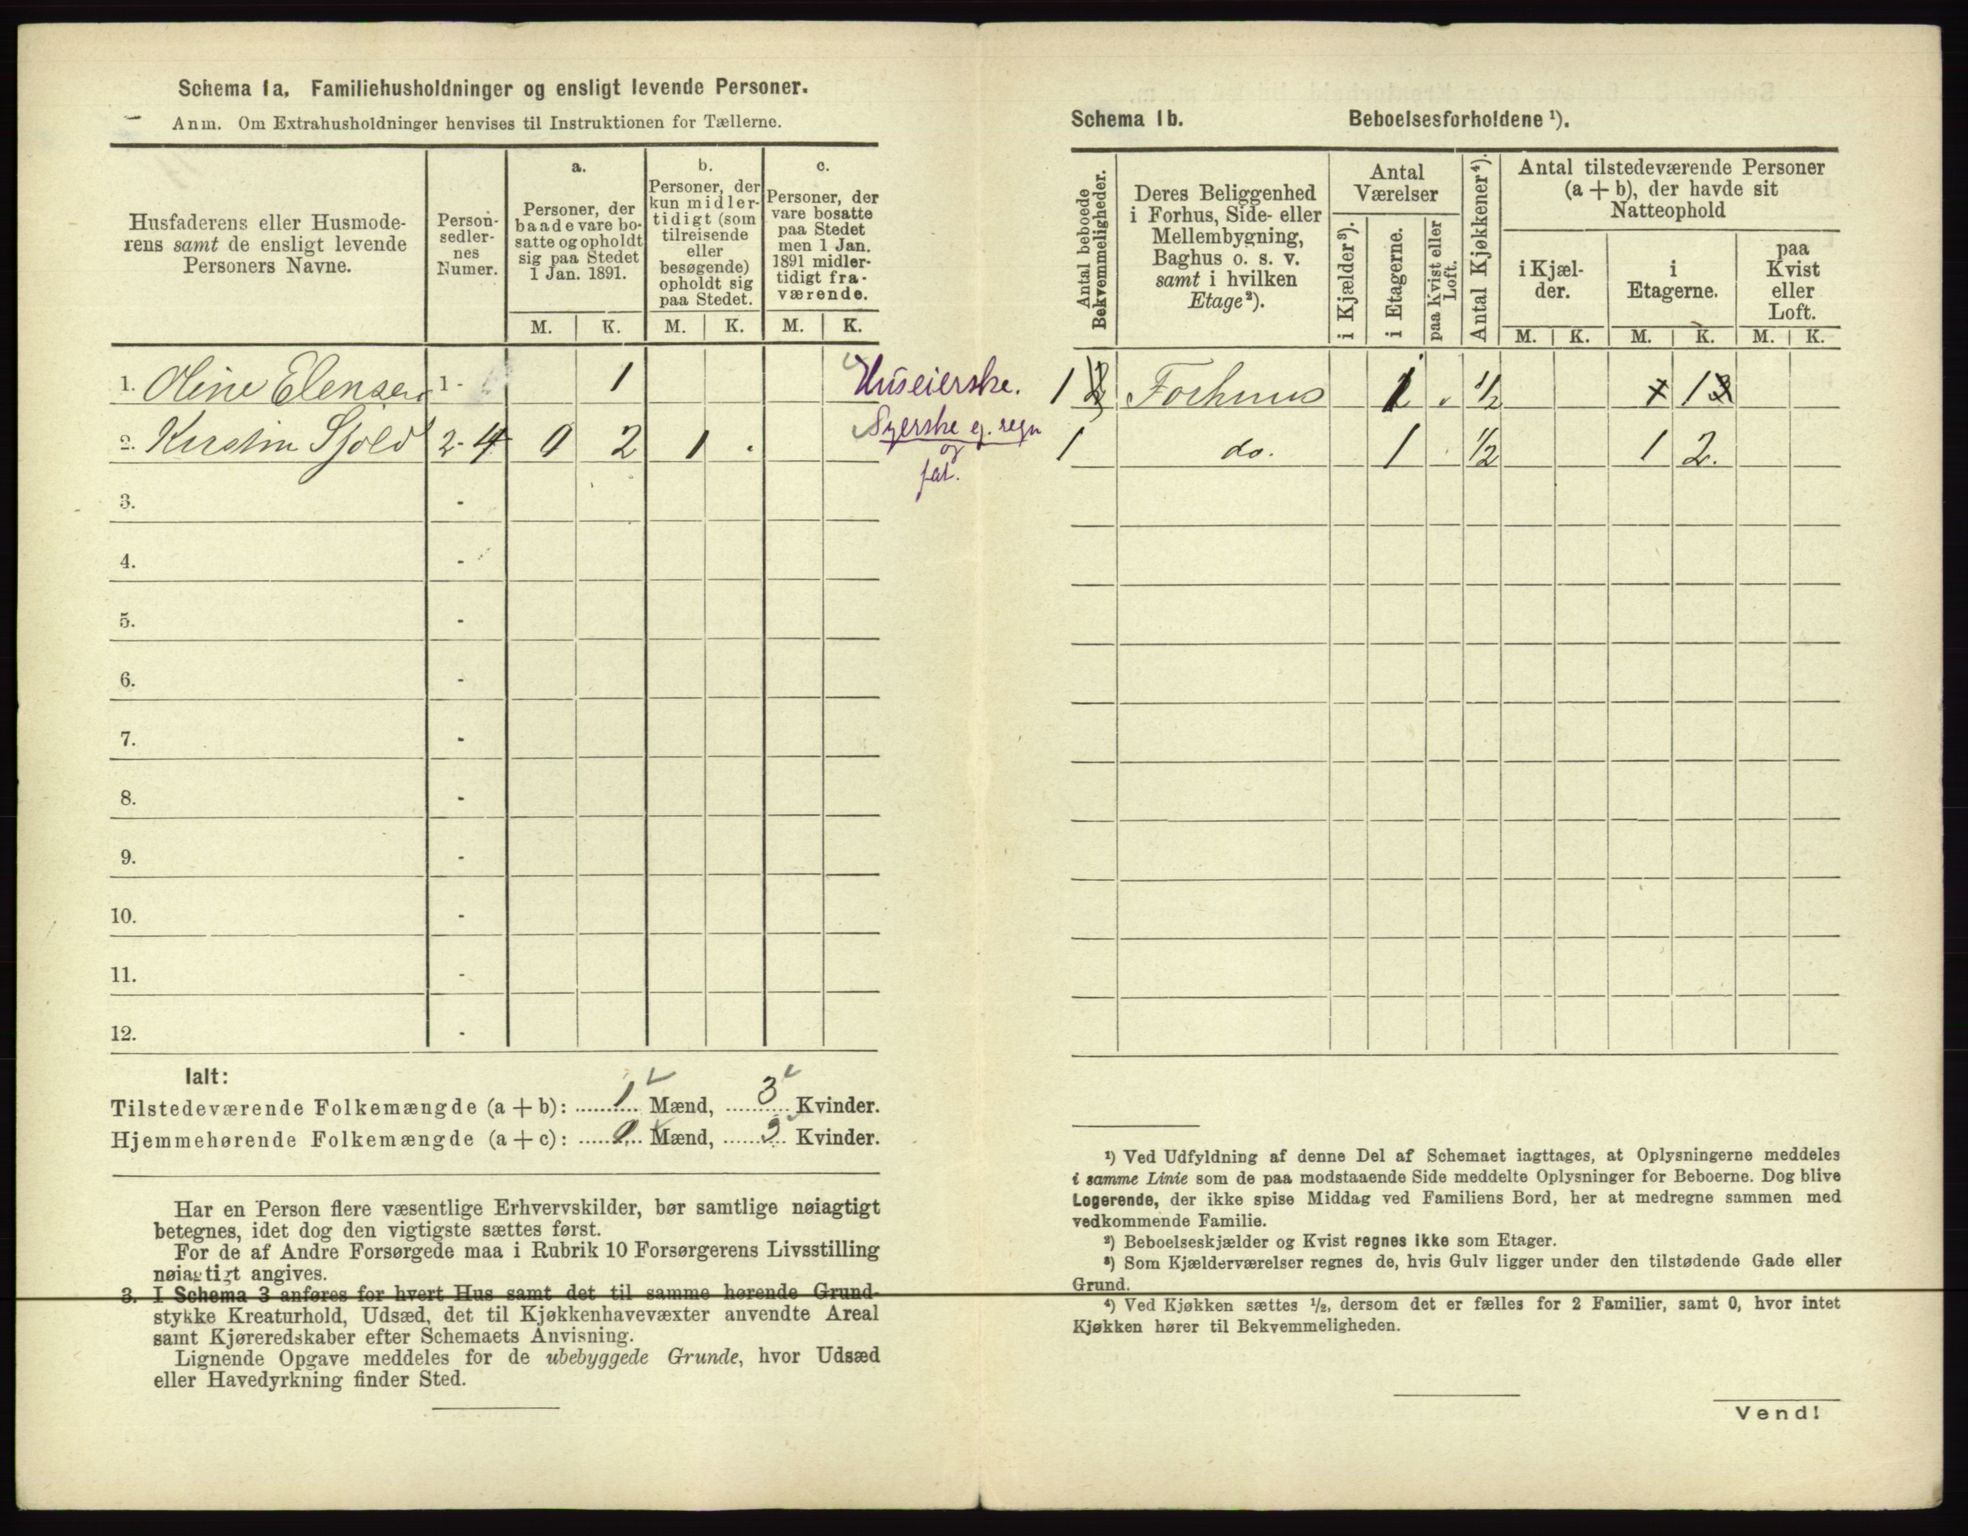 Schema 1a. Familiehusholdninger og ensligt levende Personer.
Anm. Om Extrahusholdninger henvises til Instruktionen for Tællerne.
Husfaderens eller Husmode-
rens samt de ensligt levende
Personers Navne.
Person-
sedler-
nes
Numer.
a.
Personer, der
baade vare bo-
satte og opholdt
sig paa Stedet
1 Jan. 1891.
b.
Personer, der
kun midler-
tidigt (som
tilreisende
eller
besøgende)
opholdt sig
paa Stedet.
c.
Personer, der
vare bosatte
paa Stedet
men 1 Jan.
1891 midler-
tidigt fra-
værende.
M. K. M. K. M. K.
1. Oline Elensen 1 - 1 Huseierske.
2. Kirstin Sjold 2-4 0 2 1 . Syerske ej. regn
og
fat.
3. -
4. -
5. -
6. -
7. -
8. -
9. -
10. -
11. -
12. -
Ialt:
Tilstedeværende Folkemængde (a + b): 1 Mænd, 3 Kvinder.
Hjemmehørende Folkemængde (a + c): 0 Mænd, 3 Kvinder.
Har en Person flere væsentlige Erhvervskilder, bør samtlige nøiagtigt
betegnes, idet dog den vigtigste sættes først.
For de af Andre Forsørgede maa i Rubrik 10 Forsørgerens Livsstilling
nøiagtigt angives.
3. I Schema 3 anføres for hvert Hus samt det til samme hørende Grund-
stykke Kreaturhold, Udsæd, det til Kjøkkenhavevæxter anvendte Areal
samt Kjøreredskaber efter Schemaets Anvisning.
Lignende Opgave meddeles for de ubebyggede Grunde, hvor Udsæd
eller Havedyrkning finder Sted.
Schema 1b. Beboelsesforholdene ¹).
Antal beboede
Bekvemmeligheder.
Deres Beliggenhed
i Forhus, Side- eller
Mellembygning,
Baghus o. s. v.
samt i hvilken
Etage²).
Antal
Værelser
i Kjælder³).
i Etagerne.
paa Kvist eller
Loft.
Antal Kjøkkener⁴).
Antal tilstedeværende Personer
(a + b), der havde sit
Natteophold
i Kjæl-
der.
i
Etagerne.
paa
Kvist
eller
Loft.
M. K. M. K. M. K.
1 2 Forhuus 1 . ½ 1 1 3
1 do. 1 . ½ 1 2.
¹) Ved Udfyldning af denne Del af Schemaet iagttages, at Oplysningerne meddeles
i samme Linie som de paa modstaaende Side meddelte Oplysninger for Beboerne. Dog blive
Logerende, der ikke spise Middag ved Familiens Bord, her at medregne sammen med
vedkommende Familie.
²) Beboelseskjælder og Kvist regnes ikke som Etager.
³) Som Kjælderværelser regnes de, hvis Gulv ligger under den tilstødende Gade eller
Grund.
⁴) Ved Kjøkken sættes ½, dersom det er fælles for 2 Familier, samt 0, hvor intet
Kjøkken hører til Bekvemmeligheden.
Vend!